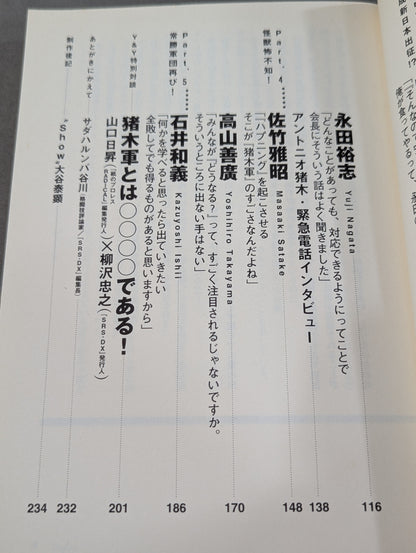 成新日本出征!?
永田裕志 Yuji Nagata
「どんなことがあっても、対応できるようにってことで
会長にそういう話はよく聞きました」
116
アントニオ猪木・緊急電話インタビュー
138
Part.4……
怪獣怖不知!
佐竹雅昭 Masaaki Satake
「「ハプニング」を起こさせる
そこが「猪木軍」のすごさなんだよね」
148
高山善廣 Yoshihiro Takayama
「みんなが「どうなる?」って、すごく注目されるじゃないですか。
そういうところに出ない手はない」
170
Part.5……
常勝軍団再び!
石井和義 Kazuyoshi Ishii
「何かを学べると思ったら出ていきたい
全敗してでも得るものがあると思いますから」
186
Y&Y特別対談
猪木軍とは○○○○である!
山口日昇(「紙のプロレスRADICAL」編集発行人)×柳沢忠之(「SRS・DX」発行人)
201
あとがきにかえて
サダハルンバ谷川(格闘技評論家/「SRS・DX」編集長)
232
制作後記
"Show"大谷泰顕
234